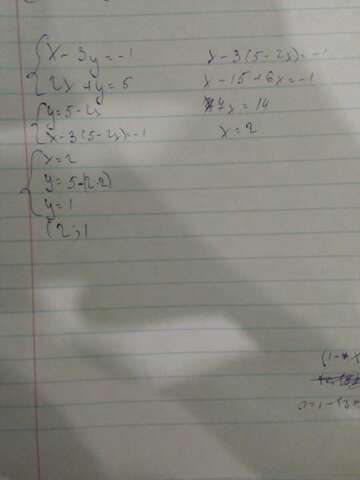 x - 3y = -1
2x + y = 5
y = 5 - 2x
x - 3(5 - 2x) = -1
x = 2
y = 5 - (2·2)
y = 1
(2; 1
x - 3(5 - 2x) = -1
x - 15 + 6x = -1
7x = 14
x = 2
(1-